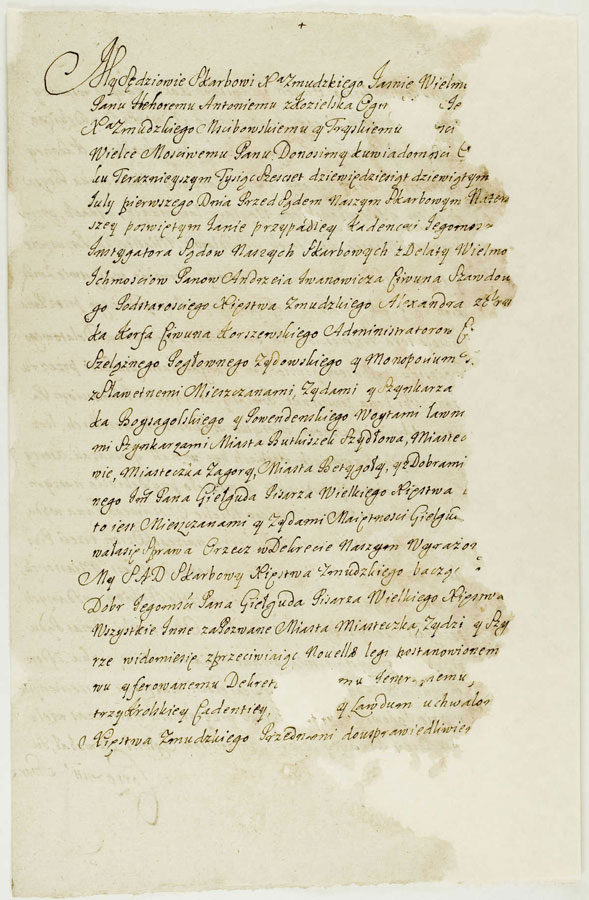 My Sędziowie Skarbowi Xa Zmudzkiego Jasnie Wielm
Panu Hrehoremu Antoniemu z Kozielska Ogi
Xa Zmudzkiego Mscibowskiemu y
Wielce Mosciwemu Panu. Donosimy ku wiadomosci
ku Teraznieyszym Tysiąc Szescset dziewiędziesiąt dziewiątym
July pierwszego Dnia Przed Sądem Naszym Skarbowym
szey poswiętym Janie przypadłey Kadencyi Jegomos
Instygatora Sądow Naszych Skarbowych z Delaty Wielmo
Ichmosciow Panow Andrzeia Iwanowicza Ciwuna Szawdow
go Podstarosciego Xięstwa Zmudzkiego Alexandra
ka Korfa Ciwuna Korszewskiego Administratorow
Szelężnego Pogłownego Zydowskiego y Monopolium
z Sławetnemi Mieszczanami, Zydami y Szynkarza
ka Boysagolskiego y Powendenskiego Woytami ławni
mi Szynkarzami Miasta Butkiszek Szydłowa, Miastec
wie, Miasteczka Zagory, Miasta Betygoły, y z Dobrami
nego Jmc Pana Giełguda Pisarza Wielkiego Xięstwa
to iest Mieszczanami y Zydami Maiętnosci Giełgu
wałasię Sprawa O rzecz w Dekrecie Naszym Wyrażon
My SĄD Skarbowy Xięstwa Zmudzkiego bacząc
Dobr Jegomsci Pana Giełguda Pisarza Wielkiego Xięstwa
Wszystkie Inne zapozwane Miasta Miasteczka, Zydzi y Szyn
rze widomie się zprzeciwiaiąc Novellæ legi postanowionem
wu y ferowanemu Dekret mu
trzykrolskiey Cadentiey, y Lawdum uchwalon
Xięstwa Zmudzkiego Przed nami do usprawiedliwien